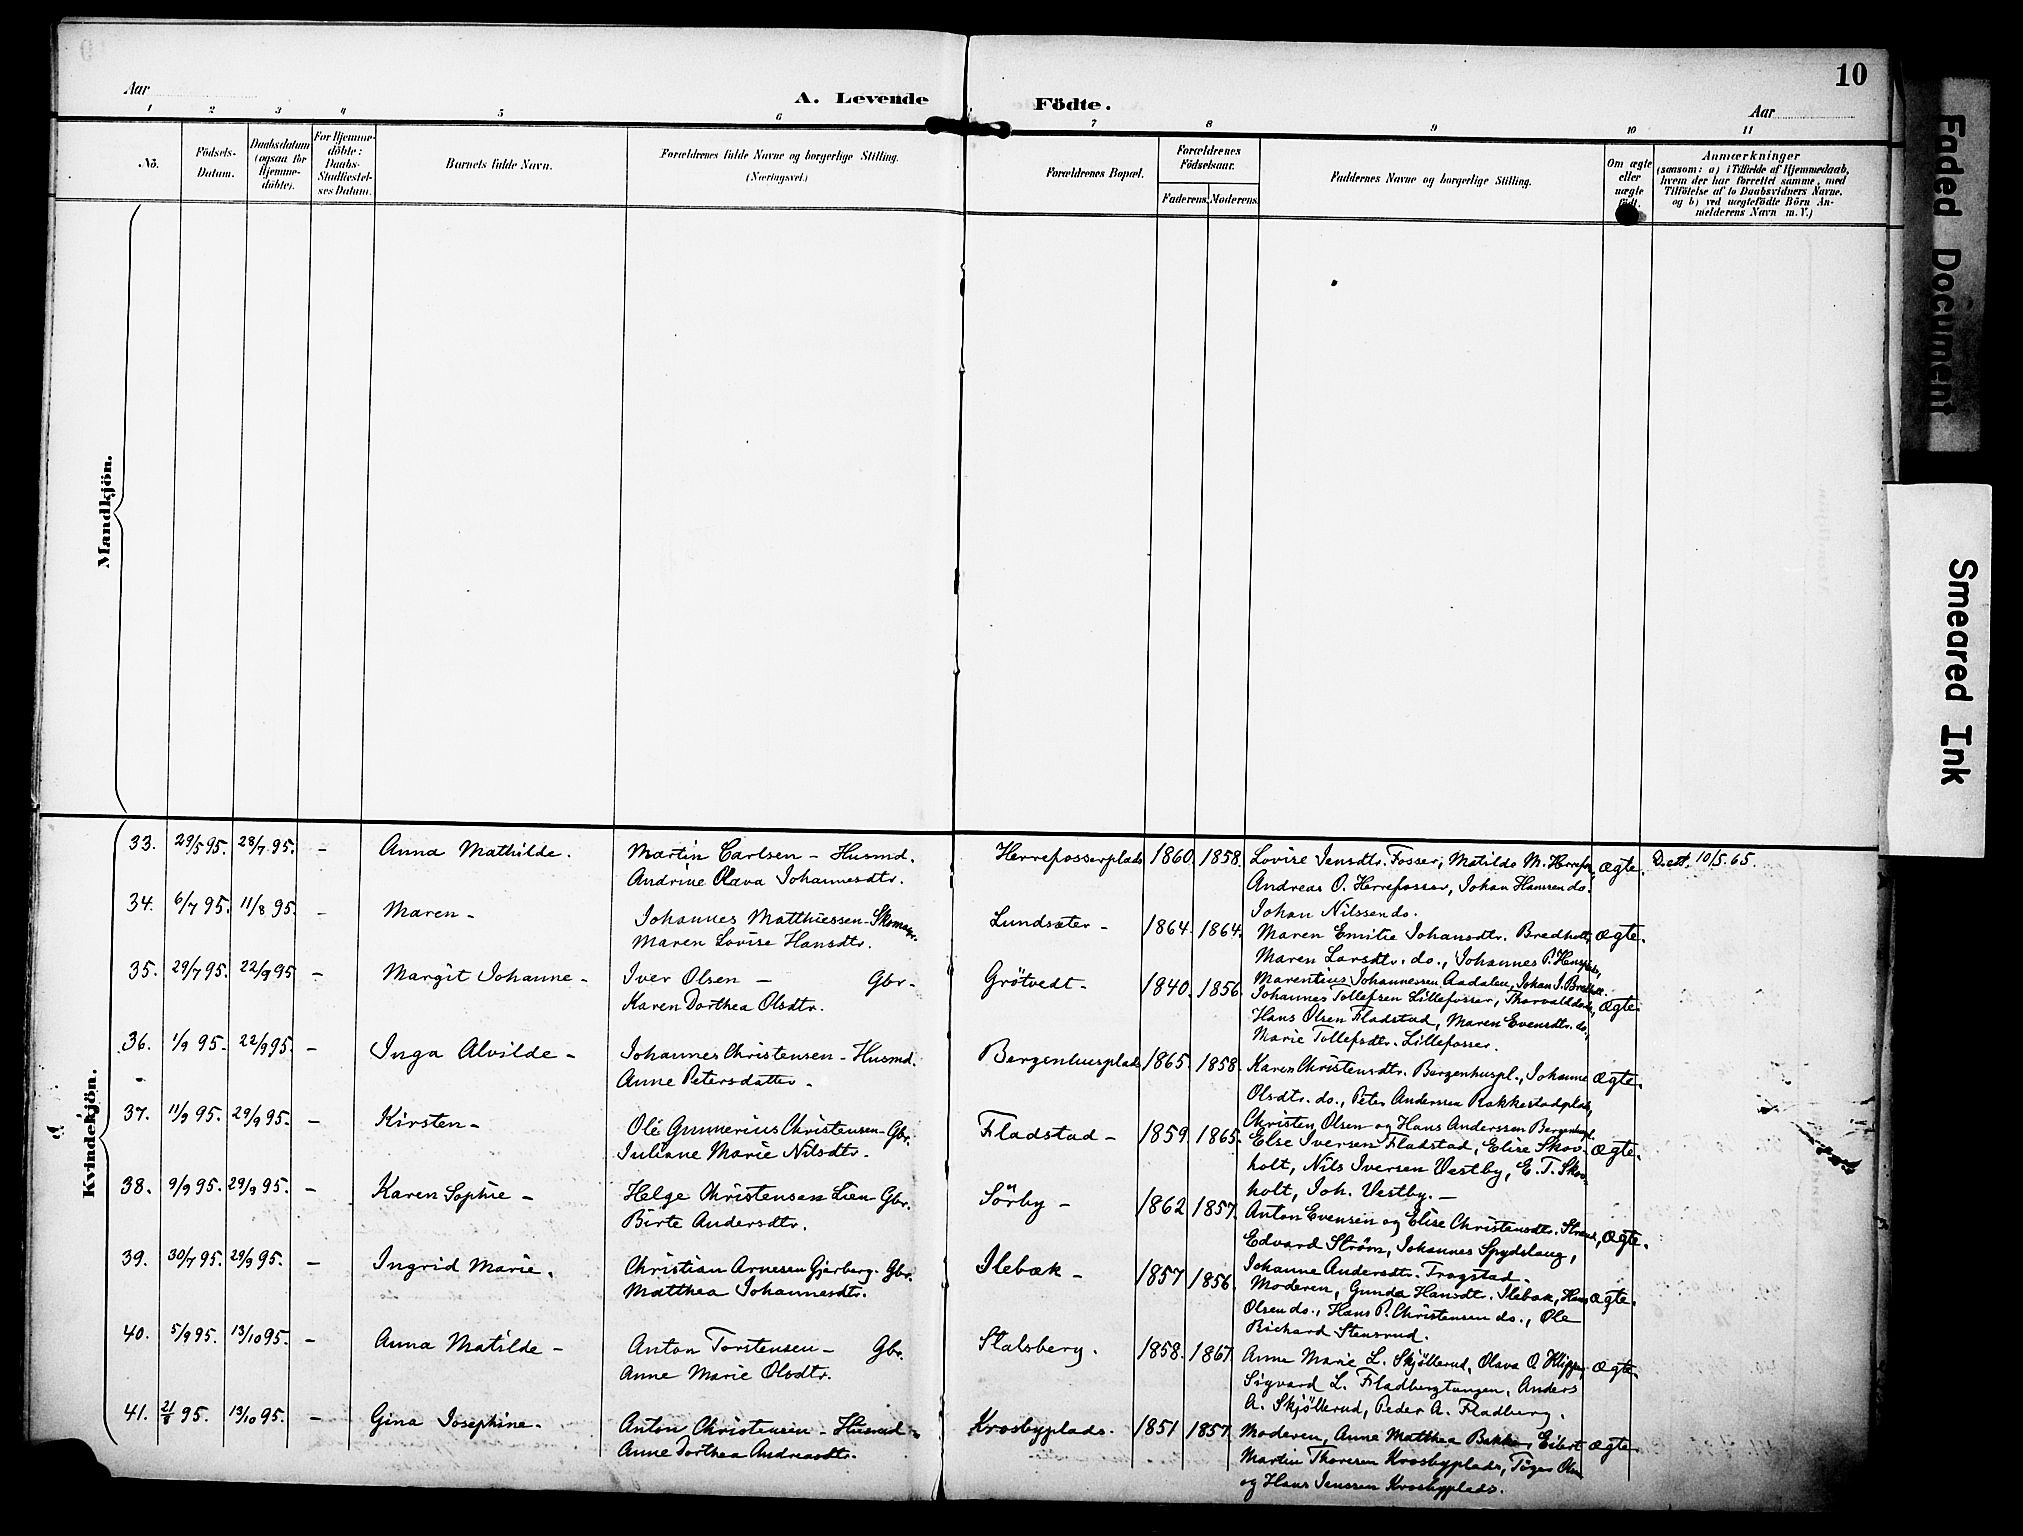 10
Aar
A. Levende Födte.
Aar
1 2 3 4 5 6 7 8 9 10 11
No.
Födsels-Datum.
Daabsdatum (ogsaa for Hjemme-döbte).
For Hjemme-döbte: Daabs-Stadfæstel-ses Datum.
Barnets fulde Navn.
Forældrenes fulde Navne og borgerlige Stilling. (Næringsvei.)
Forældrenes Bopæl.
Forældrenes Födselsaar.
Faderens. Moderens.
Faddernes Navne og borgerlige Stilling.
Om ægte eller uægte födt.
Anmærkninger (saasom: a) i Tilfælde af Hjemmedaab, hvem der har forrettet samme, med Tilföielse af to Daabsvidners Navne. og b) ved uægtefödte Börn An-melderens Navn m. V.)
Mandkjön.
Kvindekjön.
33. 29/5 95. 28/7 95. – Anna Mathilde. Martin Carlsen – Husmd. Herrefosserplads 1860. 1858. Lovise Jensdtr. Fosser, Matilde M. Herrefos, ægte. Dect. 10/5. 65.
Andrine Olava Johannesdtr. Andreas O. Herrefosser, Johan Hansen do.
Johan Nilssen do.
34. 6/7 95. 11/8 95. – Maren – Johannes Matthiessen – Skomager. Lundsæter – 1864. 1864. Maren Emilie Johansdtr. Bredholt, ægte.
Maren Lovise Hansdtr. Maren Larsdtr. do., Johannes P.
Marentius Johannessen Aadalen, Johan J. Bredholt.
35. 29/7 95. 22/9 95 – Margit Johanne – Iver Olsen – Gbr. Grötvedt – 1840. 1856. Johannes Tollefsen Lillefosser, Thorvald do., ægte.
Karen Dorthea Olsdtr. Hans Olsen Fladstad, Maren Evensdtr. do.,
Marie Tollefsdtr. Lillefosser.
36. 1/9 95. 22/9 95. – Inga Alvilde – Johannes Christensen – Husmd. Bergenhusplads 1865. 1858. Karen Christensdtr. Bergenhuspl., Johanne ægte.
Anne Petersdatter. Olsdtr. do., Peter Anderssen Rakkestadplads,
Christen Olsen og Hans Anderssen Bergenhuspl.
37. 11/9 95. 29/9 95. – Kirsten – Ole Gunnerius Christensen – Gbr. Fladstad – 1859. 1865. Else Iversen Fladstad, Elise Skov- ægte.
Juliane Marie Nilsdtr. holt, Nils Iversen Vestby, E. T. Skov-
holt, Joh. Vestby. –
38. 9/9 95. 29/9 95. – Karen Sophie – Helge Christensen Lien – Gbr. Sörby – 1862 1857. Anton Evensen og Elise Christensdtr. Strand, ægte.
Birte Andersdtr. Edvard Ström, Johannes Spydslaug,
Johanne Andersdtr. Trogstad.
39. 30/7 95. 29/9 95. – Ingrid Marie. Christian Arnesen Gjerberg. Gbr. Ilebæk – 1857 1856. Moderen, Gunda Hansdtr. Ilebæk, Hans ægte.
Matthea Johannesdtr. Olsen do., Hans P. Christensen do., Ole
Richard Stensrud.
40. 5/9 95. 13/10 95. – Anna Matilde – Anton Torstensen – Gbr. Stalsberg. 1858. 1867. Anne Marie L. Skjöllerud, Olava O. Klippen, ægte.
Anne Marie Olsdtr. Sigvard L. Fladbergtangen, Anders
A. Skjöllerud, Peder A. Fladberg.
41. 21/8 95. 13/10 95. – Gina Josephine. Anton Christensen – Husmd. Krosbyplads. 1851 1857. Moderen, Anne Matthea Bakke, Eilert ægte
Anne Dorthea Andreasdtr. Martin Thoresen Krosbyplads, Töger Olsen
og Hans Jenssen Krosbyplads.
Faded Document
Smeared Ink